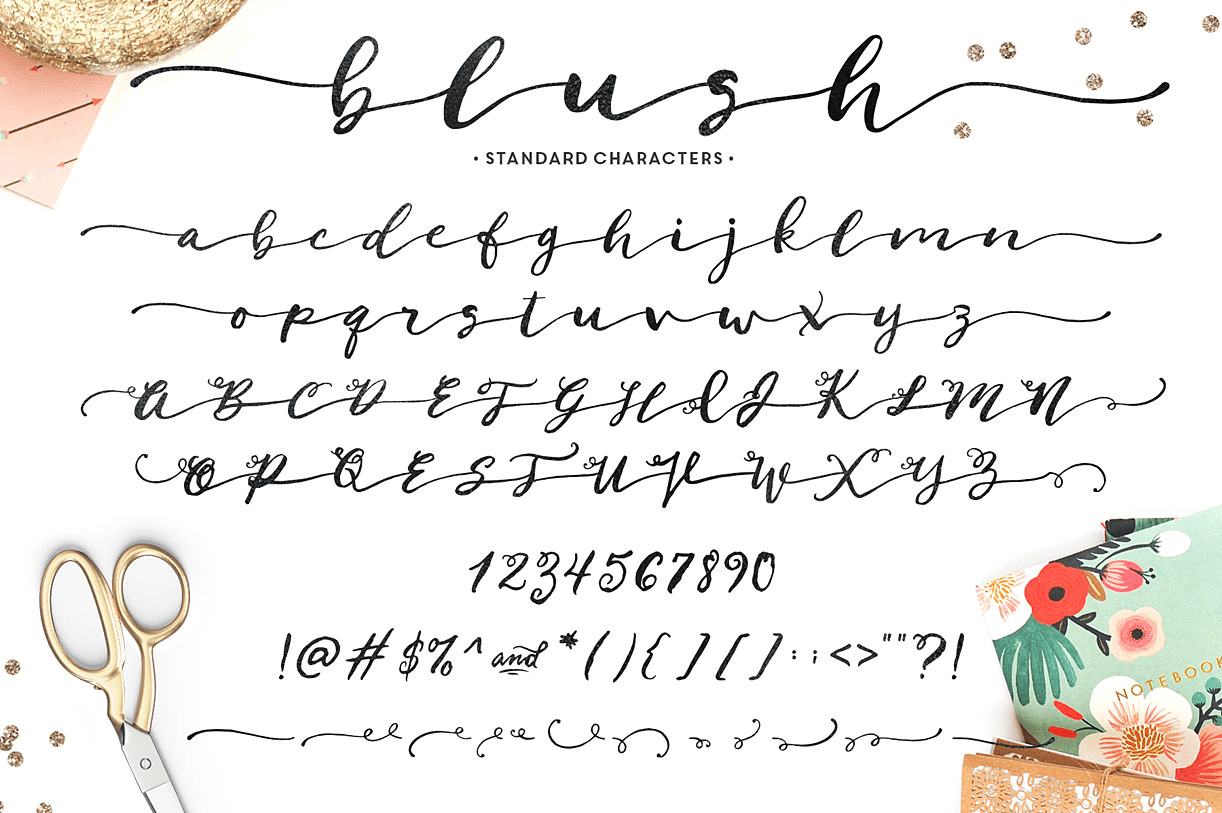 blush
• STANDARD CHARACTERS •
abcdefghijklmn
opqrstuvwxyz
ABCDEFGHIJKLMN
OPQRSTUVWXYZ
1234567890
!@#$%^and*(){}[]:;<>""?!
NOTEBOOK